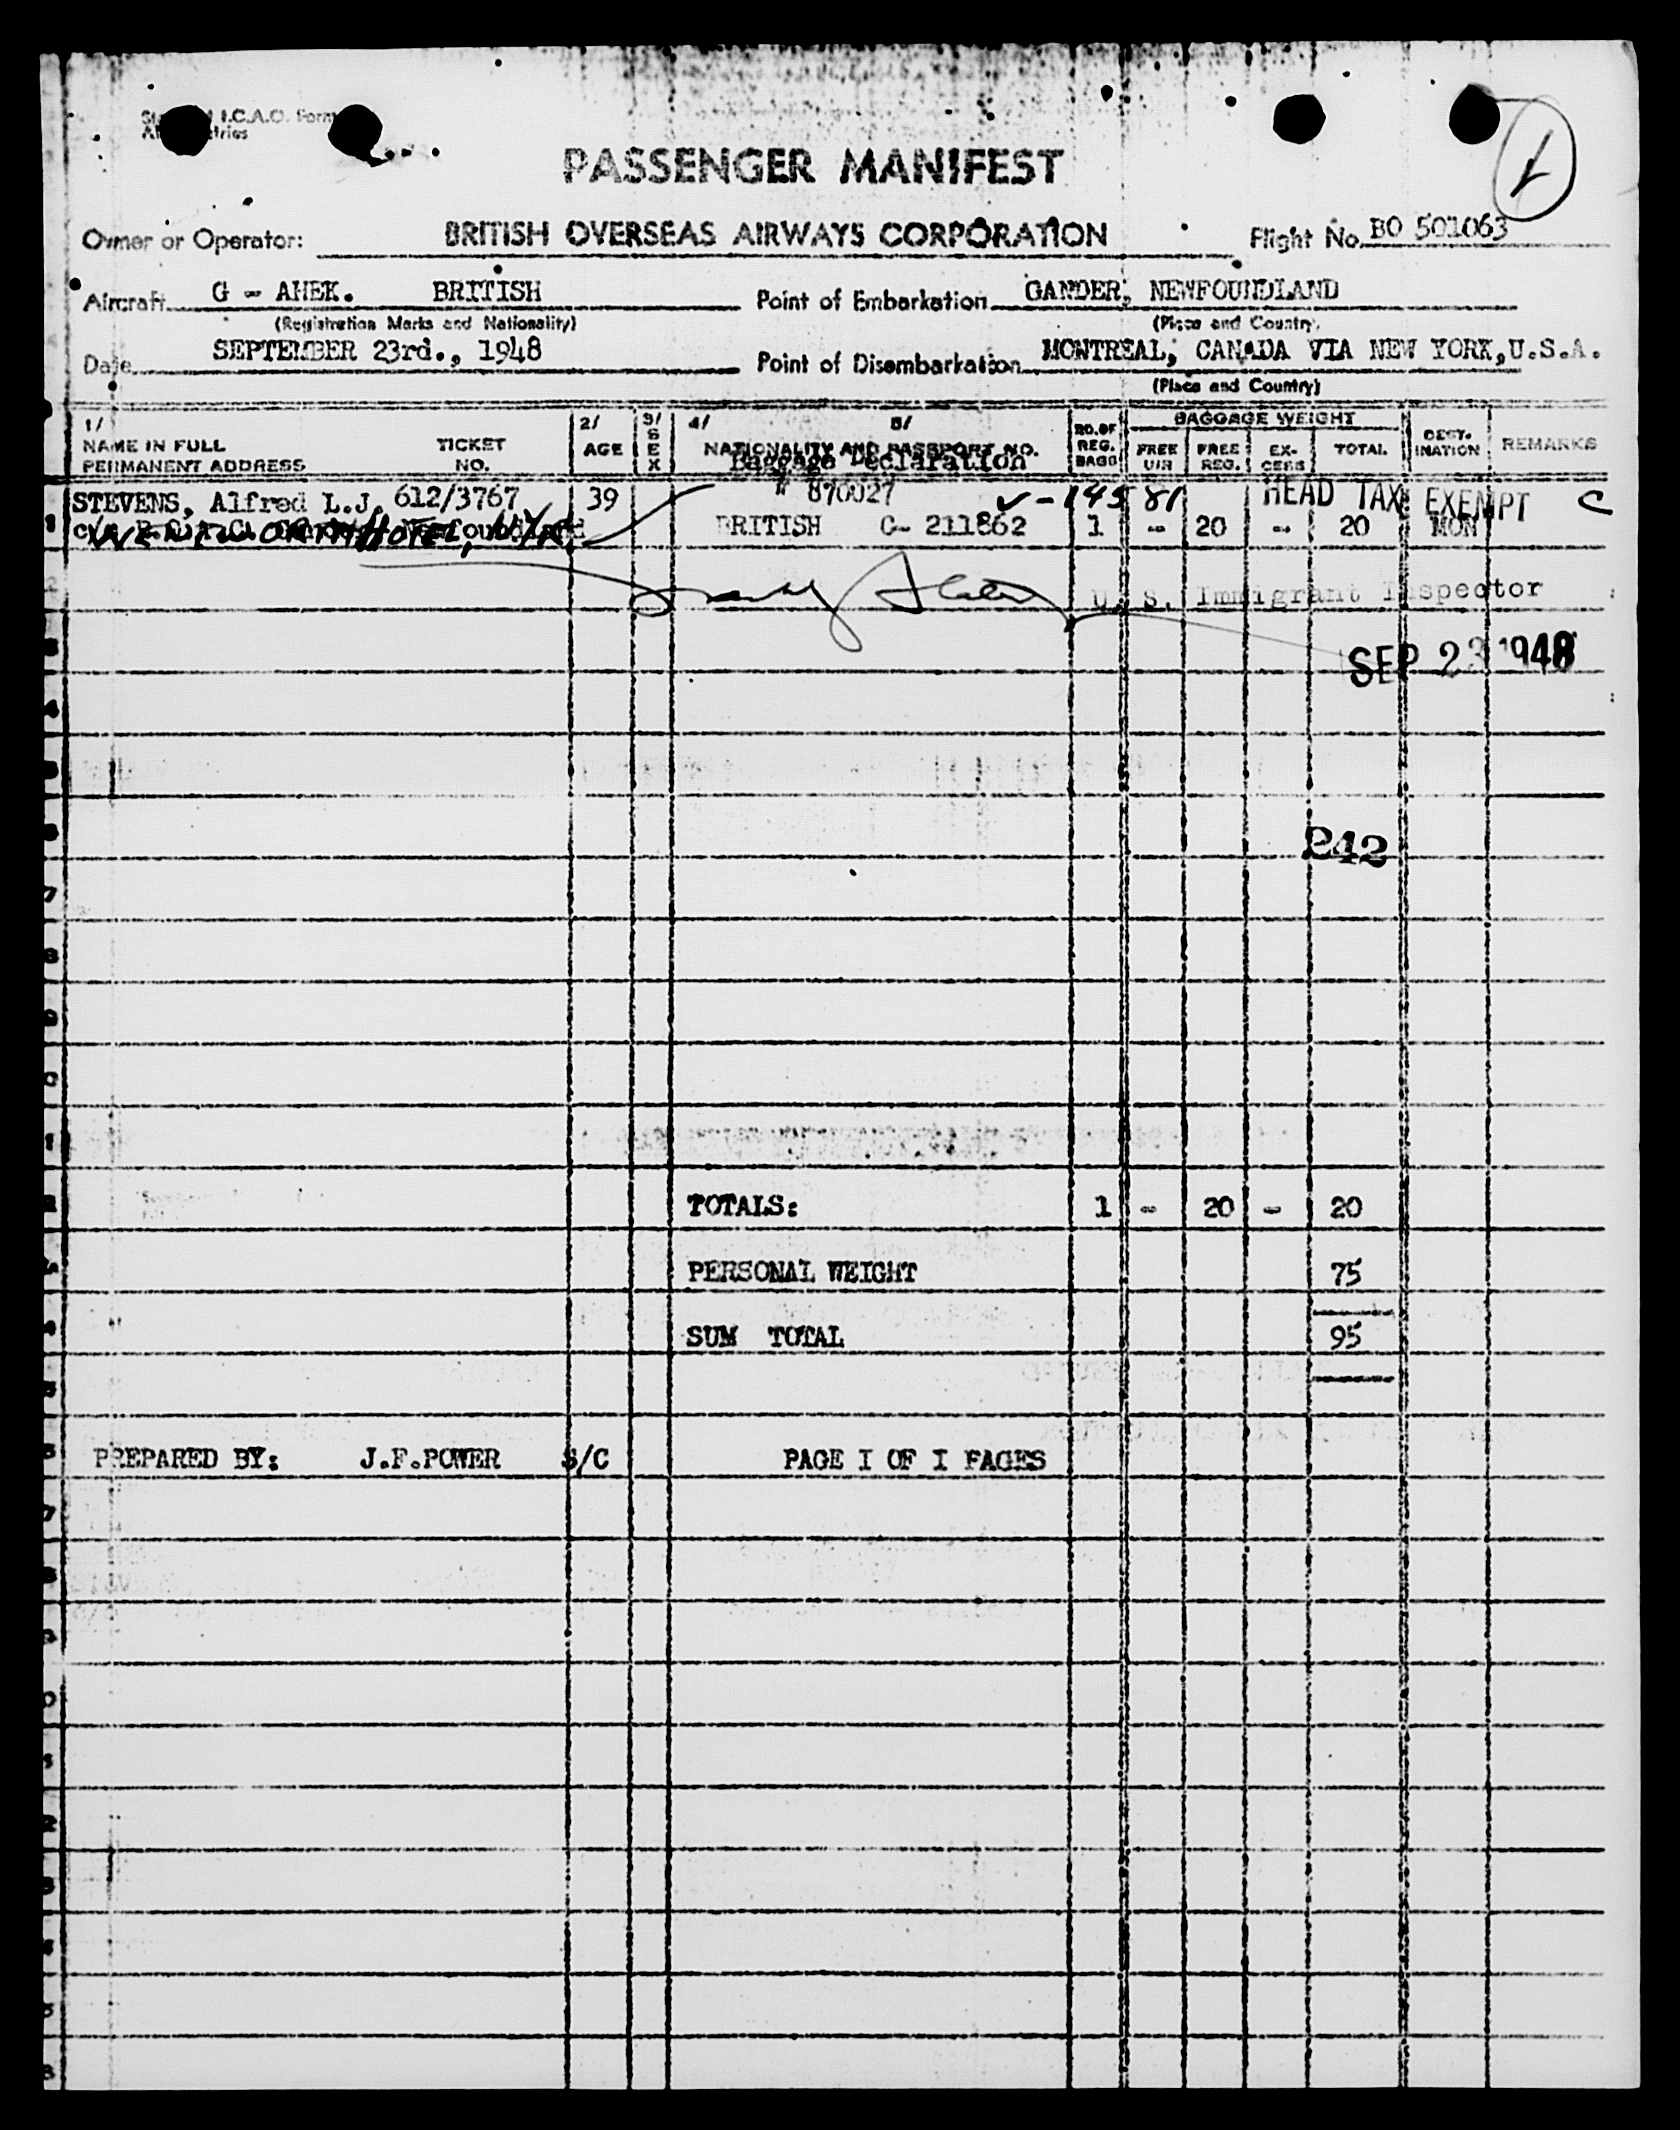 I.C.A.O. Form
PASSENGER MANIFEST
Owner or Operator: BRITISH OVERSEAS AIRWAYS CORPORATION Flight No. BO 501063
Aircraft G - AHEK. BRITISH Point of Embarkation GANDER, NEWFOUNDLAND
(Registration Marks and Nationality) (Place and Country)
Date SEPTEMBER 23rd., 1948 Point of Disembarkation MONTREAL, CANADA VIA NEW YORK, U.S.A.
(Place and Country)
1/ 2/ 3/ 4/ 5/ NO. OF REG. BAGG BAGGAGE WEIGHT DEST-INATION REMARKS
NAME IN FULL TICKET AGE SEX NATIONALITY AND PASSPORT NO. FREE FREE REG. EX-CESS TOTAL
PERMANENT ADDRESS NO. Baggage Declaration
STEVENS, Alfred L.J. 612/3767 39 # 870027 145 81 HEAD TAX EXEMPT C
1 HOTEL, N.Y. BRITISH C- 211862 1 - 20 - 20 MON
U. S. Immigrant Inspector
SEP 23 1948
242
TOTALS: 1 - 20 - 20
PERSONAL WEIGHT 75
SUM TOTAL 95
PREPARED BY: J.F.POWER S/C PAGE I OF I PAGES